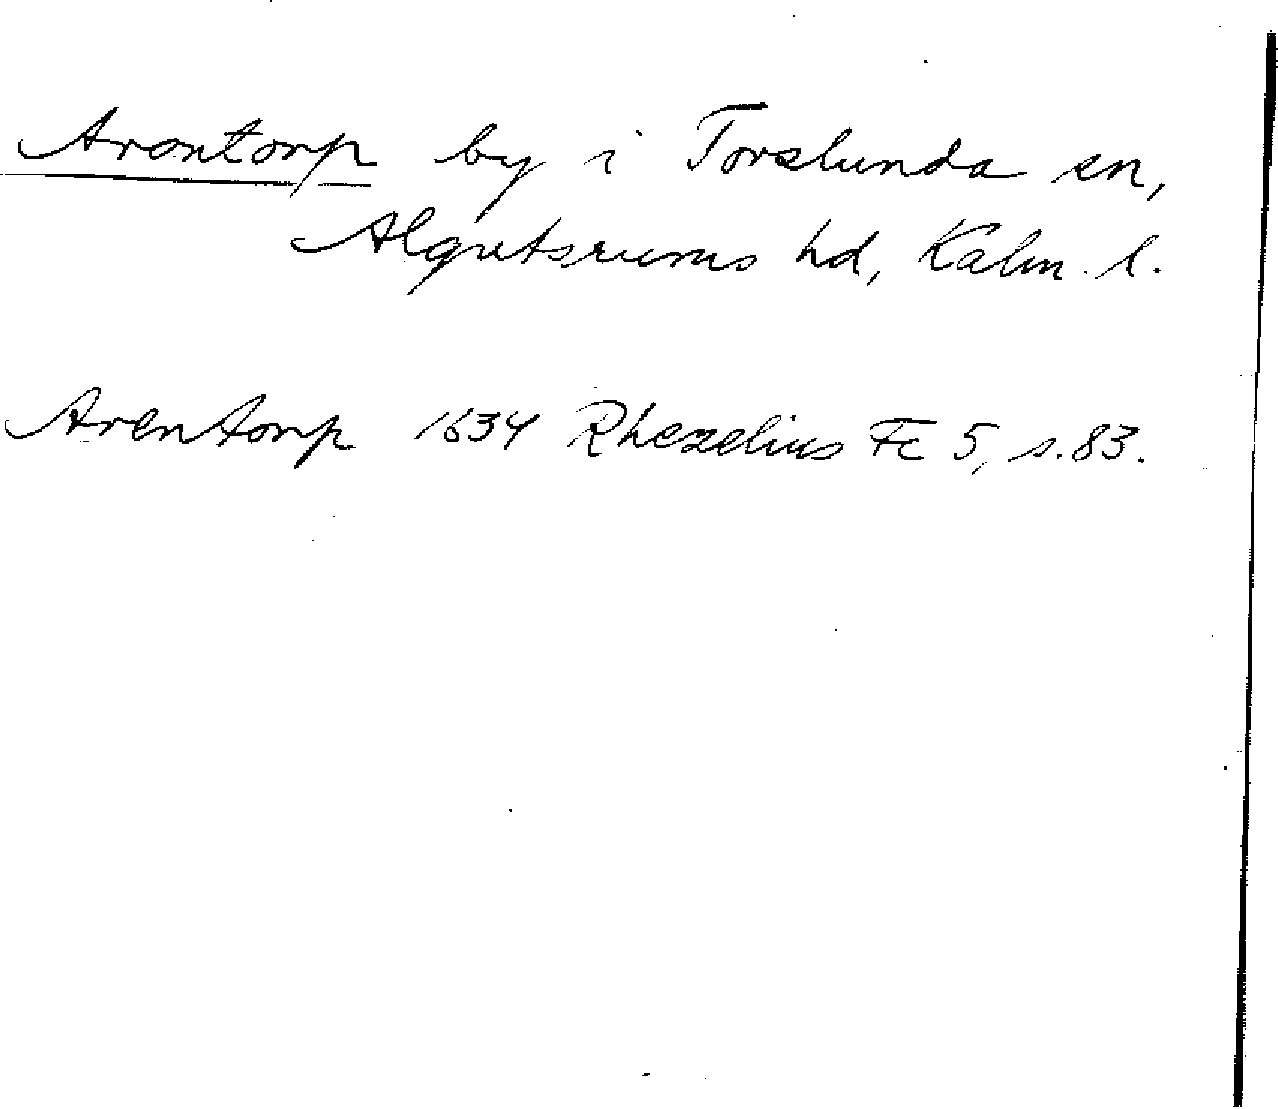 Arontorp by i Torslunda sn,
Algutsrums hd, Kalm. l.
Arentorp 1634 Rhezelius Fc 5, s. 83.